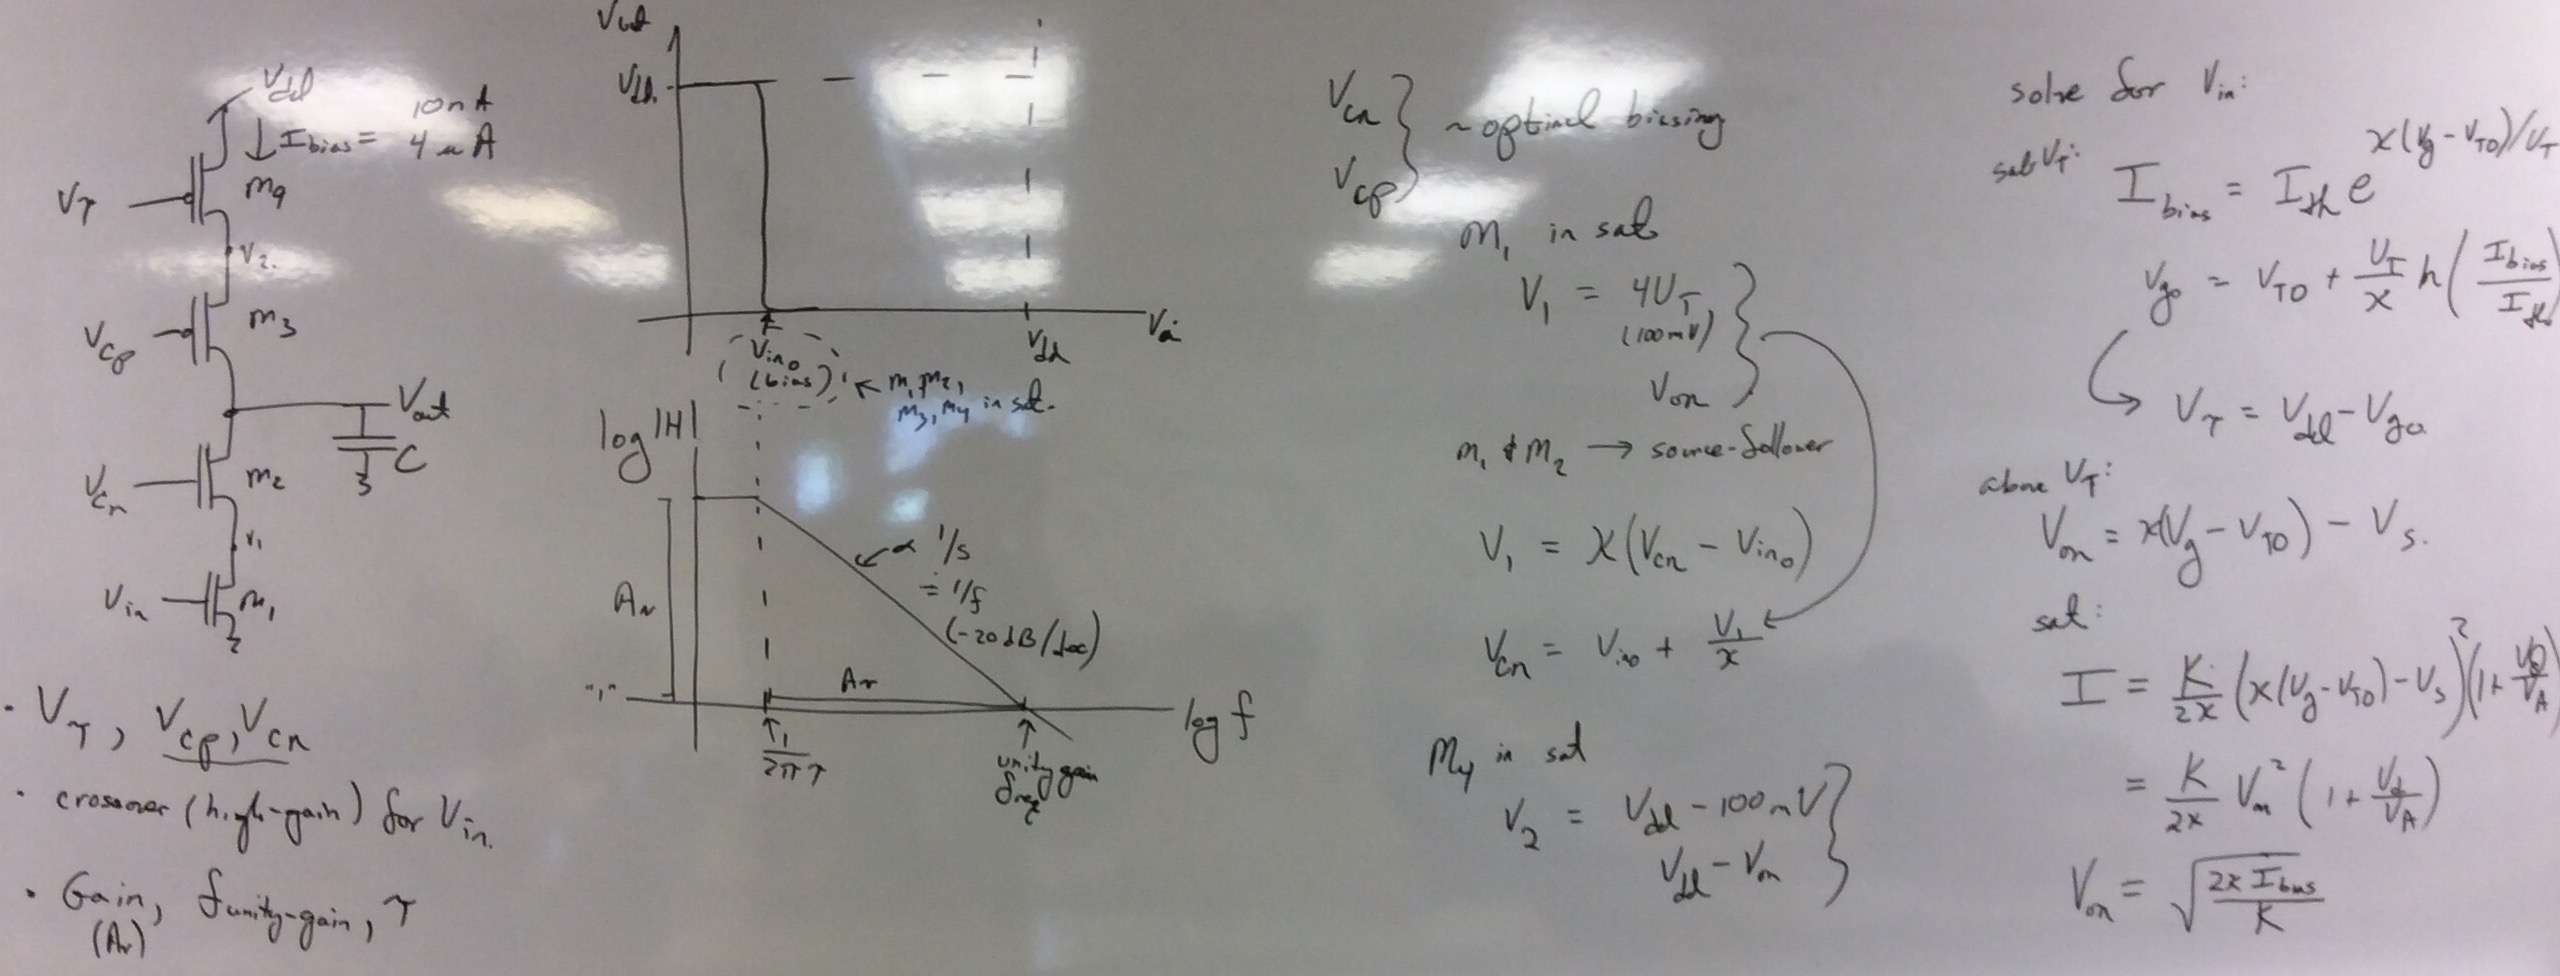 Vdd
10nA
Ibias = 4μA
Vτ
M4
V2
Vcp
M3
Vout
C
Vcn
M2
V1
Vin
M1
· Vτ, Vcp, Vcn
· crossover (high-gain) for Vin.
· Gain, funity-gain, τ
(Av)
Vout
Vdd
Vin
Vdd
Vin0
(bias)
← M1, M2,
M3, M4 in sat.
log |H|
Av
∝ 1/s
= 1/f
(-20 dB/dec)
"1"
Av
log f
1/2πτ
unity gain
freq
Vcn
Vcp
~ optimal biasing
M1 in sat
V1 = 4UT
(100mV)
Von
M1 & M2 → source-follower
V1 = χ(Vcn - Vin0)
Vcn = Vin0 + V1/χ
M4 in sat
V2 = Vdd - 100mV
Vdd - Von
solve for Vin:
sub VT: Ibias = Ith e^χ(Vg - VT0)/UT
Vg0 = VT0 + UT/χ ln(Ibias/Ith)
Vτ = Vdd - Vg0
above VT:
Von = χ(Vg - VT0) - Vs.
sat:
I = K/2χ (χ(Vg - VT0) - Vs)² (1 + Vd/VA)
= K/2χ Von² (1 + Vd/VA)
Von = √(2χ Ibias/K)